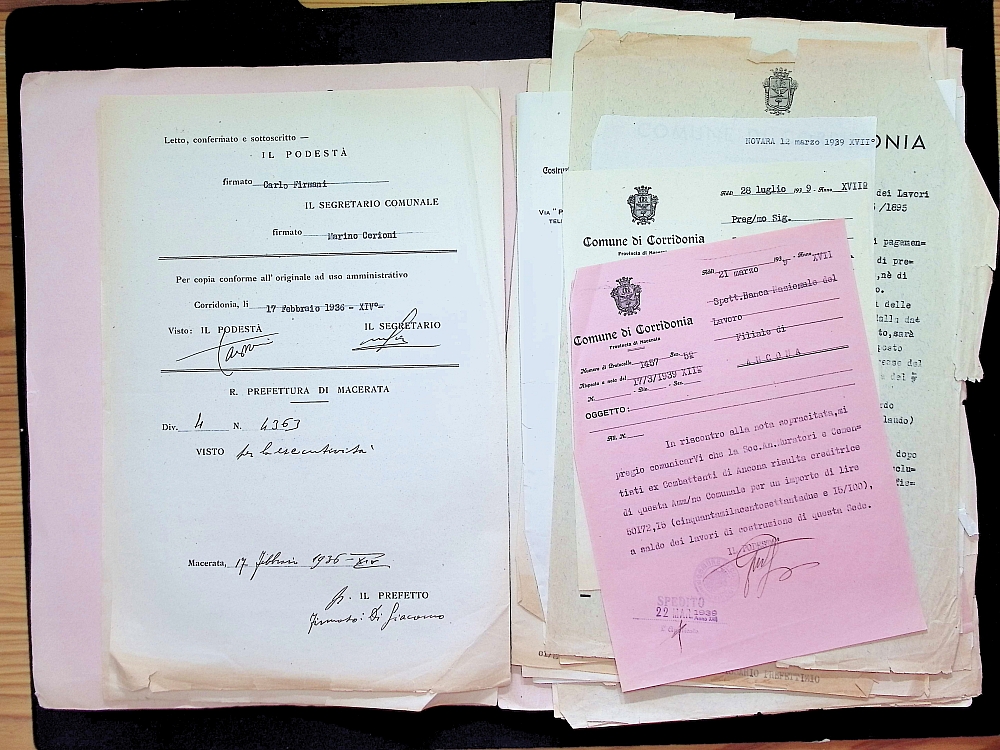 Letto, confermato e sottoscritto —
IL PODESTÀ
firmato Carlo Firmani
IL SEGRETARIO COMUNALE
firmato Marino Cerioni
Per copia conforme all' originale ad uso amministrativo
Corridonia, li 17 Febbraio 1936 - XIV°-
Visto: IL PODESTÀ
IL SEGRETARIO
R. PREFETTURA DI MACERATA
Div. 4 N. 4363
VISTO per la esecutività
Macerata, 17 febbraio 1936 - XIV
p. IL PREFETTO
firmato: Di Giacomo
Costruz
VIA "P
TELE
ONIA
NOVARA 12 marzo 1939 XVII°
dei Lavori
/1895
i pagamen=
di pre=
,nè di
o.
i delle
dalla dat
to,sarà
posto
del
rdo
laudo)
dopo
clu=
fic=
Addì 28 luglio 1939 - Anno XVII°
Preg/mo Sig.
Comune di Corridonia
Provincia di Macerata
Addì 21 marzo 193 - Anno XVII
Spett.Banca Nazionale del
Lavoro
Filiale di
ANCONA
Comune di Corridonia
Provincia di Macerata
Numero di Protocollo 1497 Sez.
Risposta a nota del 17/3/1939 XVII°
N. - Div. - Sez.
OGGETTO:
All. N.
In riscontro alla nota sopracitata,mi
pregio comunicarVi che la Soc.An.Muratori e Cemen=
tisti ex Combattenti di Ancona risulta creditrice
di questa Amm/ne Comunale per un importo di lire
50172,15 (cinquantamilacentosettantadue e 15/100),
a saldo dei lavori di costruzione di questa Sede.
IL PODESTA'
SPEDITO
22 MAR 1939
Anno XVII
PREFETTIZIO